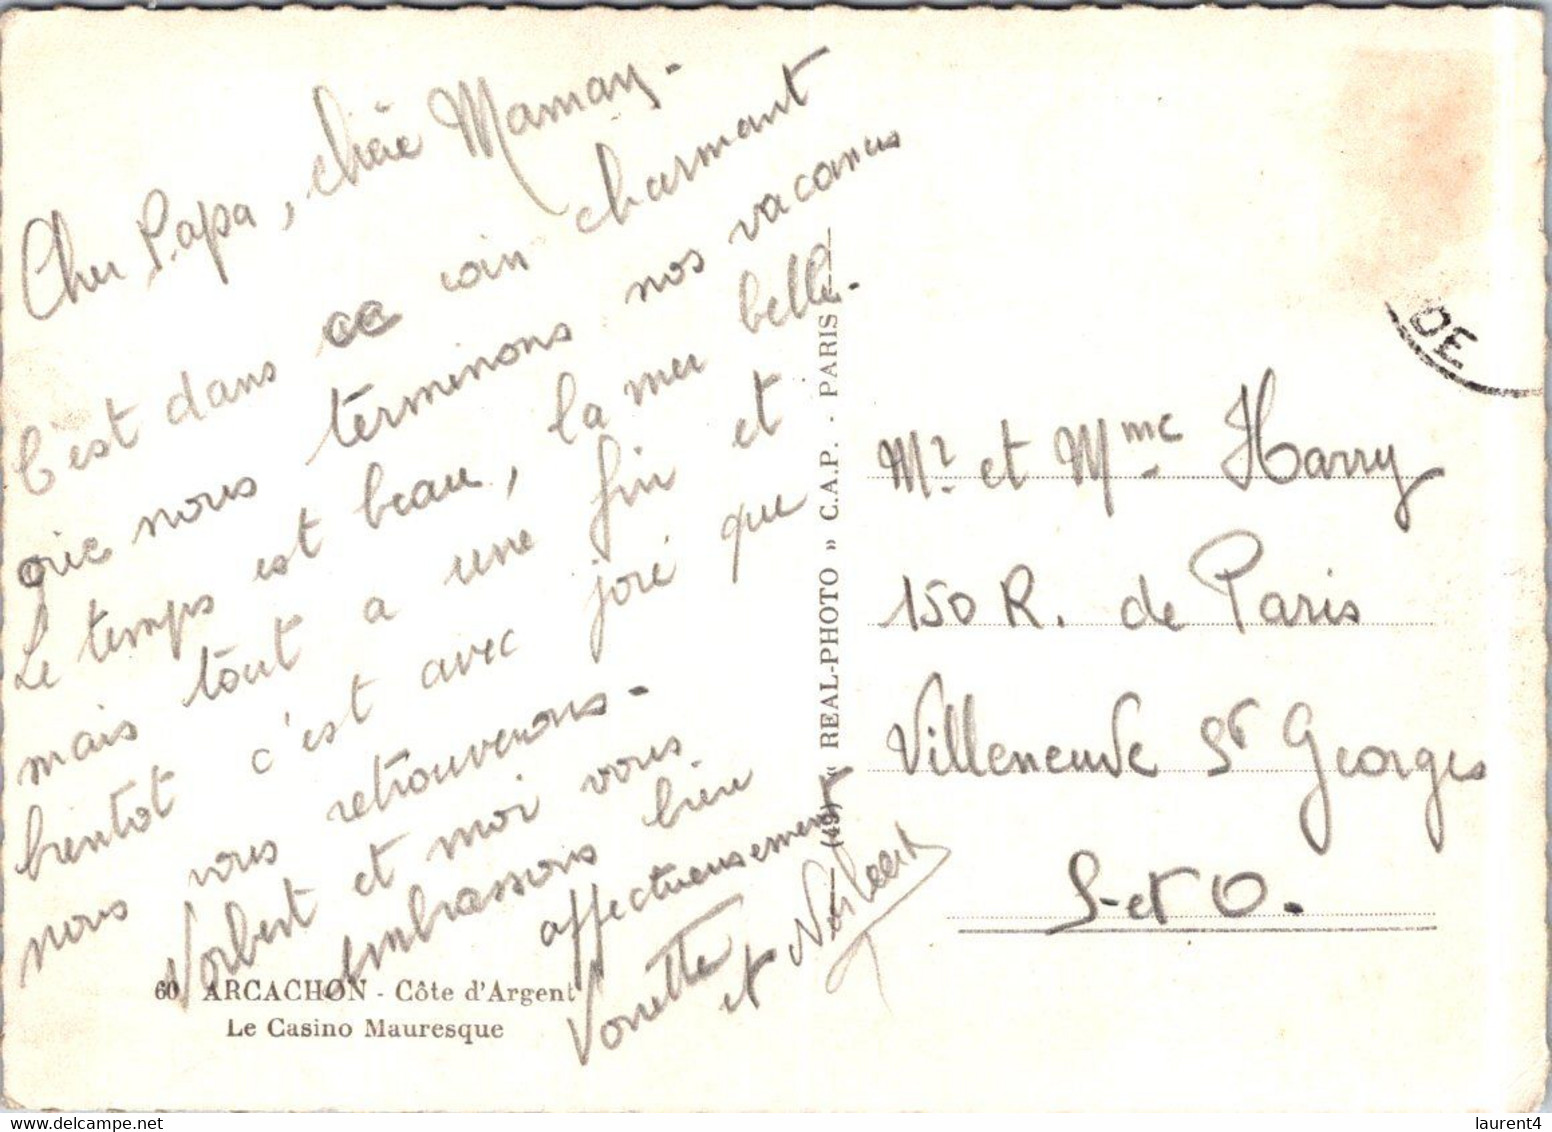 Cher Papa, chère Maman -
C'est dans ce coin charmant
que nous terminons nos vacances
Le temps est beau, la mer belle.
mais tout a une fin et
bientot c'est avec joie que
nous vous retrouverons -
Norbert et moi vous
embrassons bien
affectueusement
Vonette
et Norbert
60 ARCACHON - Côte d'Argent
Le Casino Mauresque
(49) « REAL-PHOTO » C.A.P. - PARIS
DE
Mr. et Mme Harry
150 R. de Paris
Villeneuve St Georges
S-et O.
laurent4